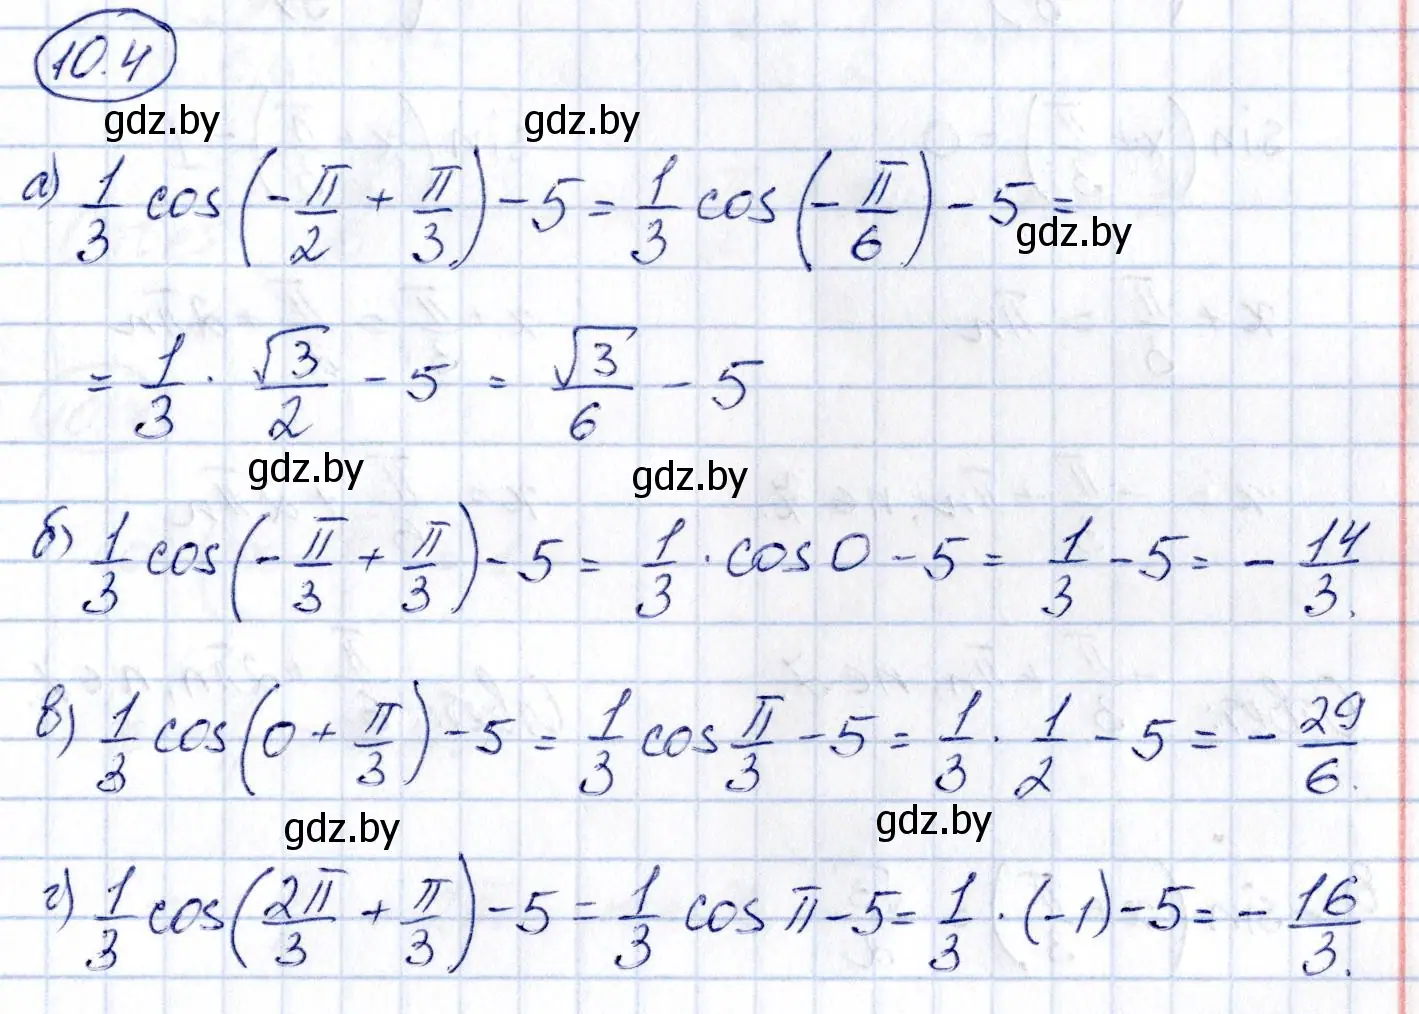 10.4
gdz.by gdz.by
а) 1/3 cos(-π/2 + π/3) - 5 = 1/3 cos(-π/6) - 5 =
gdz.by
= 1/3 · √3/2 - 5 = √3/6 - 5
gdz.by gdz.by
б) 1/3 cos(-π/3 + π/3) - 5 = 1/3 · cos 0 - 5 = 1/3 - 5 = - 14/3.
в) 1/3 cos(0 + π/3) - 5 = 1/3 cos π/3 - 5 = 1/3 · 1/2 - 5 = - 29/6.
gdz.by gdz.by
г) 1/3 cos(2π/3 + π/3) - 5 = 1/3 cos π - 5 = 1/3 · (-1) - 5 = - 16/3.